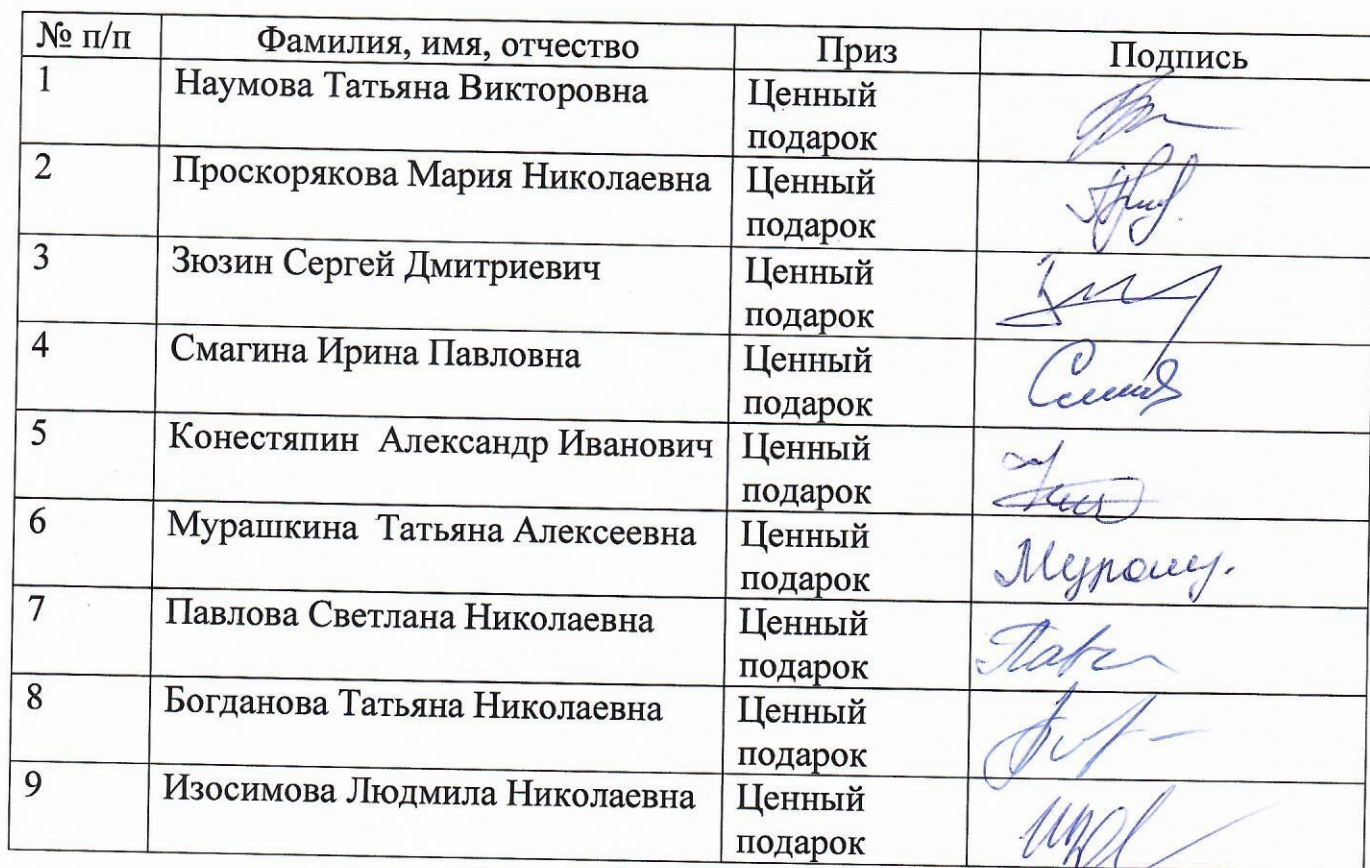 № п/п Фамилия, имя, отчество Приз Подпись
1 Наумова Татьяна Викторовна Ценный
подарок
2 Проскорякова Мария Николаевна Ценный
подарок
3 Зюзин Сергей Дмитриевич Ценный
подарок
4 Смагина Ирина Павловна Ценный
подарок
5 Конестяпин Александр Иванович Ценный
подарок
6 Мурашкина Татьяна Алексеевна Ценный
подарок
7 Павлова Светлана Николаевна Ценный
подарок
8 Богданова Татьяна Николаевна Ценный
подарок
9 Изосимова Людмила Николаевна Ценный
подарок